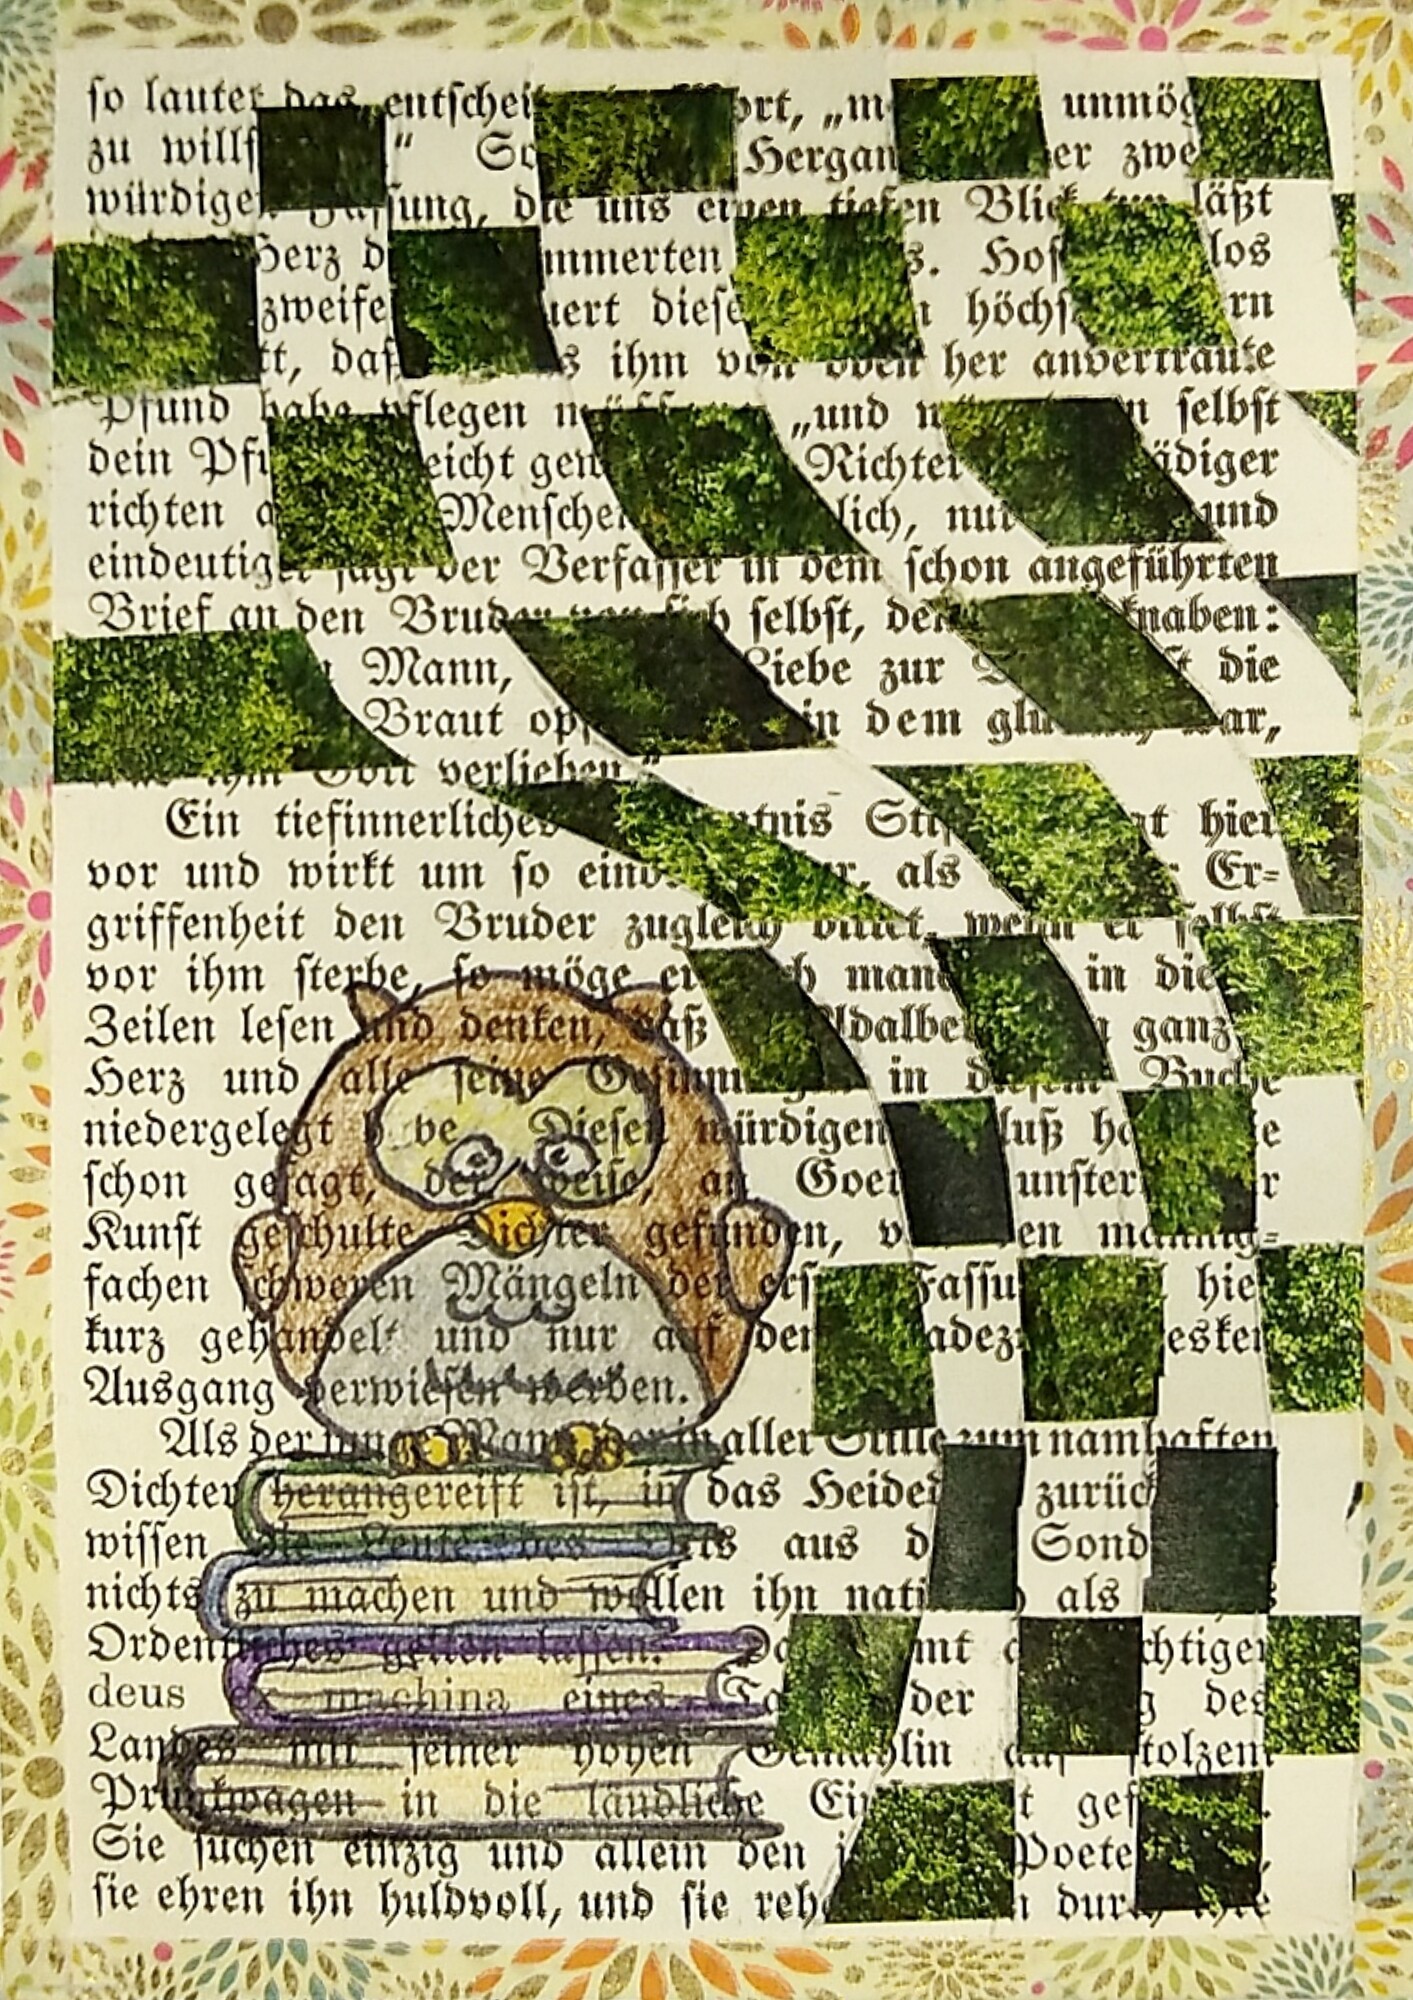 so lautet das entscheit ort, „m unmög
zu willf “ So Hergan er zwe
würdige sung, die uns einen tiefen Blick tun läßt
Herz d mmerten s. Hof los
zweife uert diese höchs rn
tt, daß s ihm von oben her anvertraute
Pfund habe pflegen m „und n n selbst
dein Pfu eicht gen Richter ädiger
richten a Menschen lich, nur und
eindeutiger sagt der Verfasser in dem schon angeführten
Brief an den Bruder von sich selbst, dem Knaben:
Mann, Liebe zur die
Braut op in dem glu ar,
ihm Gott verliehen.“
Ein tiefinnerliches ntnis Stif gt hier
vor und wirkt um so eind r, als Er-
griffenheit den Bruder zugleich bittet, wenn er selbst
vor ihm sterbe, so möge er h manc in die
Zeilen lesen und denken, daß Adalbe ganz
Herz und alle seine Gesinnu in diesem Buche
niedergelegt habe. Dieser würdigen luß ha e
schon gesagt, der Weise, an Goet unster r
Kunst geschulte Dichter gefunden, v en mannig-
fachen schweren Mängeln der ers Fassu hier
kurz gehandelt und nur auf den adez esker
Ausgang verwiesen werden.
Als der junge Mann, der in aller Stille zum namhaften
Dichter herangereift ist, in das Heided zurück
wissen die Leute des Orts aus d Sond
nichts zu machen und wollen ihn nati als
Ordentliches gelten lassen. Da mt chtiger
deus ex machina eines Ta der g des
Landes mit seiner hohen Gemahlin auf stolzem
Prunkwagen in die ländliche Ein t gef .
Sie suchen einzig und allein den j Poete ,
sie ehren ihn huldvoll, und sie reh n durch ihre